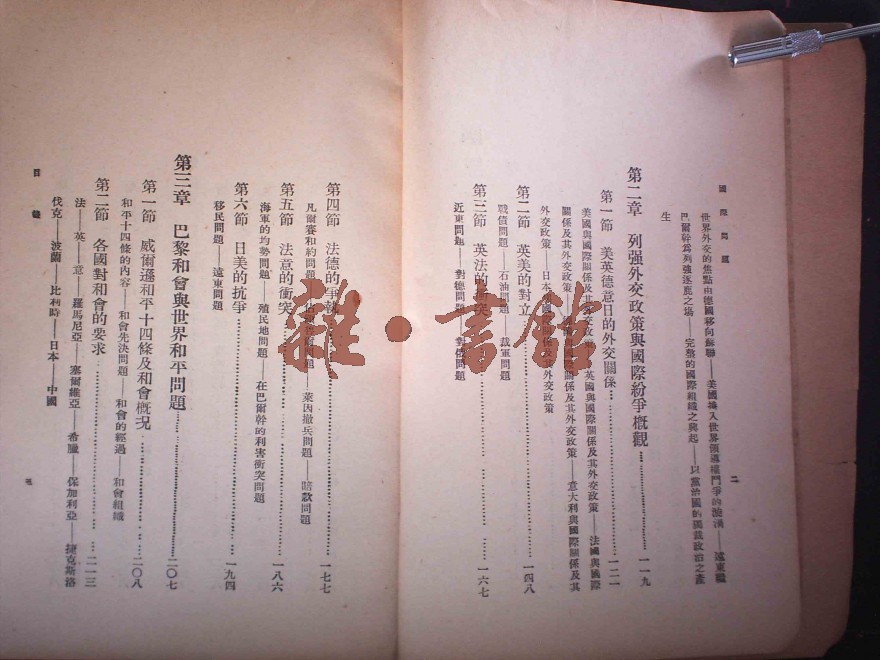 國際問題
二
世界外交的焦點由德國移向蘇聯——美國捲入世界領導權鬥爭的漩渦——遠東
巴爾幹爲列強逐鹿之場——完整的國際組織之興起——以黨治國的獨裁政治之產
生
第二章 列强外交政策與國際紛爭概觀……一一九
第一節 美英德意日的外交關係……一二一
美國與國際關係及其外交政策——英國與國際關係及其外交政策——法國與國際
關係及其外交政策——國際關係及其外交政策——意大利與國際關係及其
外交政策——日本與國際關係及外交政策
第二節 英美的對立……一四八
戰債問題——石油問題——裁軍問題
第三節 英法的衝突……一六七
近東問題——對德問題——對俄問題
第四節 法德的爭執……一七七
凡爾賽和約問題——問題——萊因撤兵問題——賠款問題
第五節 法意的衝突……一八六
海軍的均勢問題——殖民地問題——在巴爾幹的利害衝突問題
第六節 日美的抗爭……一九四
移民問題——遠東問題
第三章 巴黎和會與世界和平問題……二〇七
第一節 威爾遜和平十四條及和會概况……二〇八
和平十四條的內容——和會先決問題——和會的經過——和會組織
第二節 各國對和會的要求……二一三
法——英——意——羅馬尼亞——塞爾維亞——希臘——保加利亞——捷克斯洛
伐克——波蘭——比利時——日本——中國
目錄
三
雜·書館